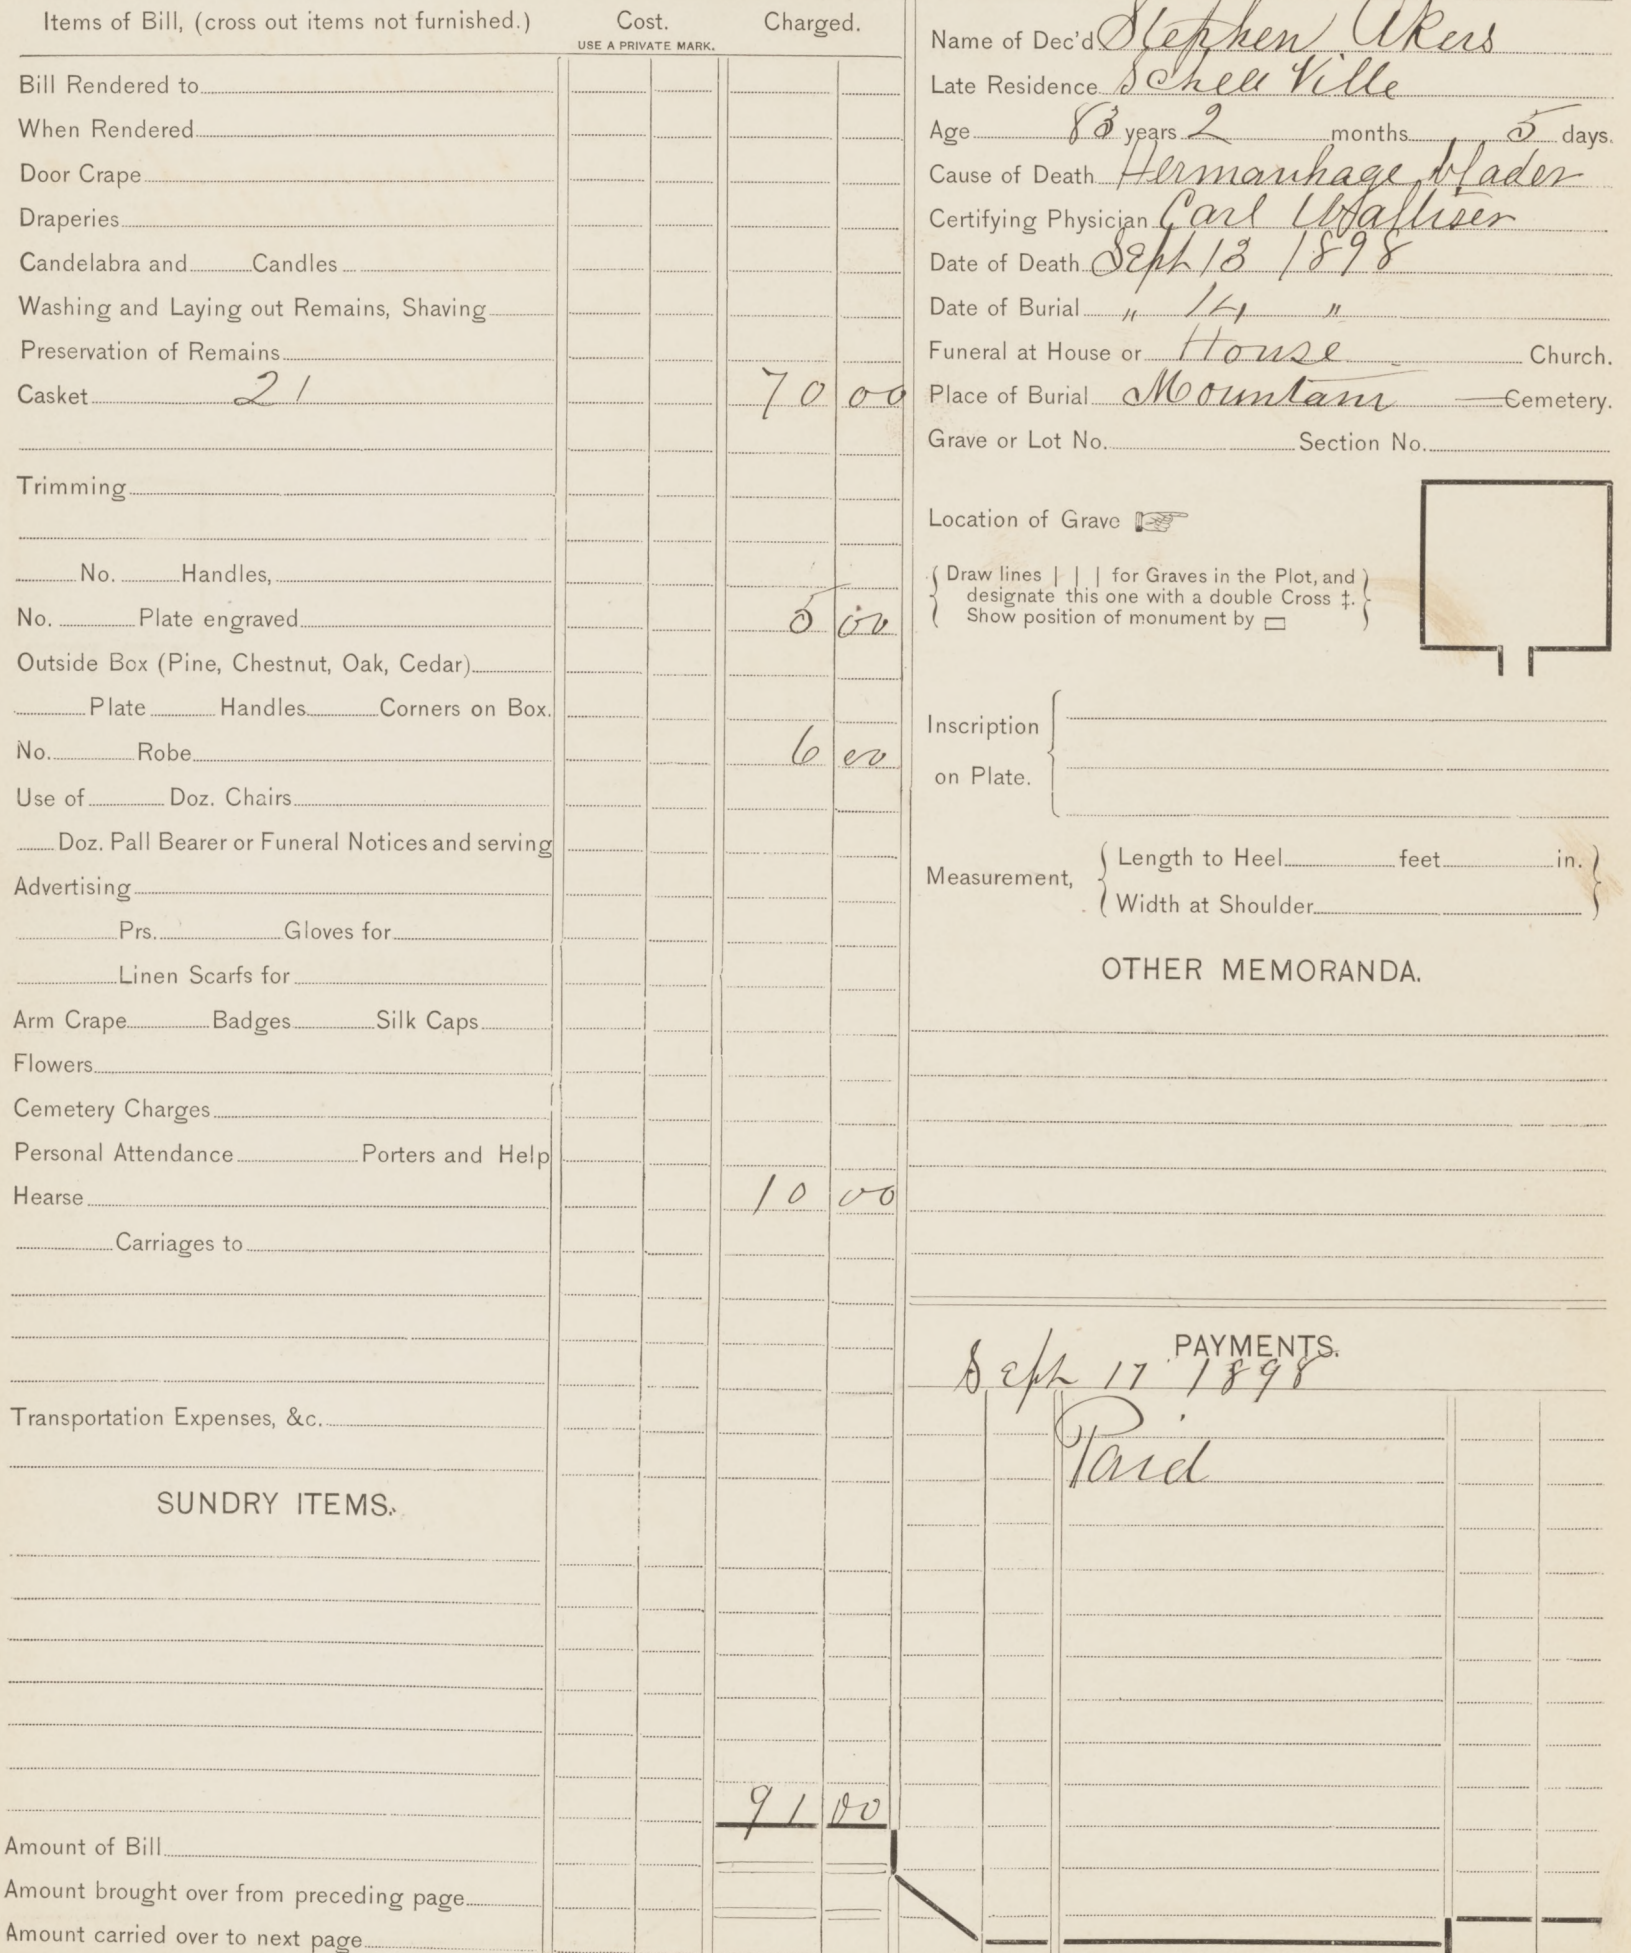 Items of Bill, (cross out items not furnished.) Cost. Charged.
USE A PRIVATE MARK.
Bill Rendered to
When Rendered
Door Crape
Draperies
Candelabra and Candles
Washing and Laying out Remains, Shaving
Preservation of Remains
Casket 21 70 00
Trimming
No. Handles,
No. Plate engraved 5 00
Outside Box (Pine, Chestnut, Oak, Cedar)
Plate Handles Corners on Box.
No. Robe 6 00
Use of Doz. Chairs
Doz. Pall Bearer or Funeral Notices and serving
Advertising
Prs. Gloves for
Linen Scarfs for
Arm Crape Badges Silk Caps
Flowers
Cemetery Charges
Personal Attendance Porters and Help
Hearse 10 00
Carriages to
Transportation Expenses, &c.
SUNDRY ITEMS.
91 00
Amount of Bill
Amount brought over from preceding page
Amount carried over to next page
Name of Dec'd Stephen Akers
Late Residence Schell Ville
Age 83 years 2 months 5 days.
Cause of Death Hermanhage blader
Certifying Physician Carl
Date of Death Sept 13 1898
Date of Burial " 14 "
Funeral at House or House Church.
Place of Burial Mountain Cemetery.
Grave or Lot No. Section No.
Location of Grave
Draw lines | | | for Graves in the Plot, and
designate this one with a double Cross ‡.
Show position of monument by
Inscription
on Plate.
Measurement, Length to Heel feet in.
Width at Shoulder
OTHER MEMORANDA.
PAYMENTS.
Sept 17 1898
Paid